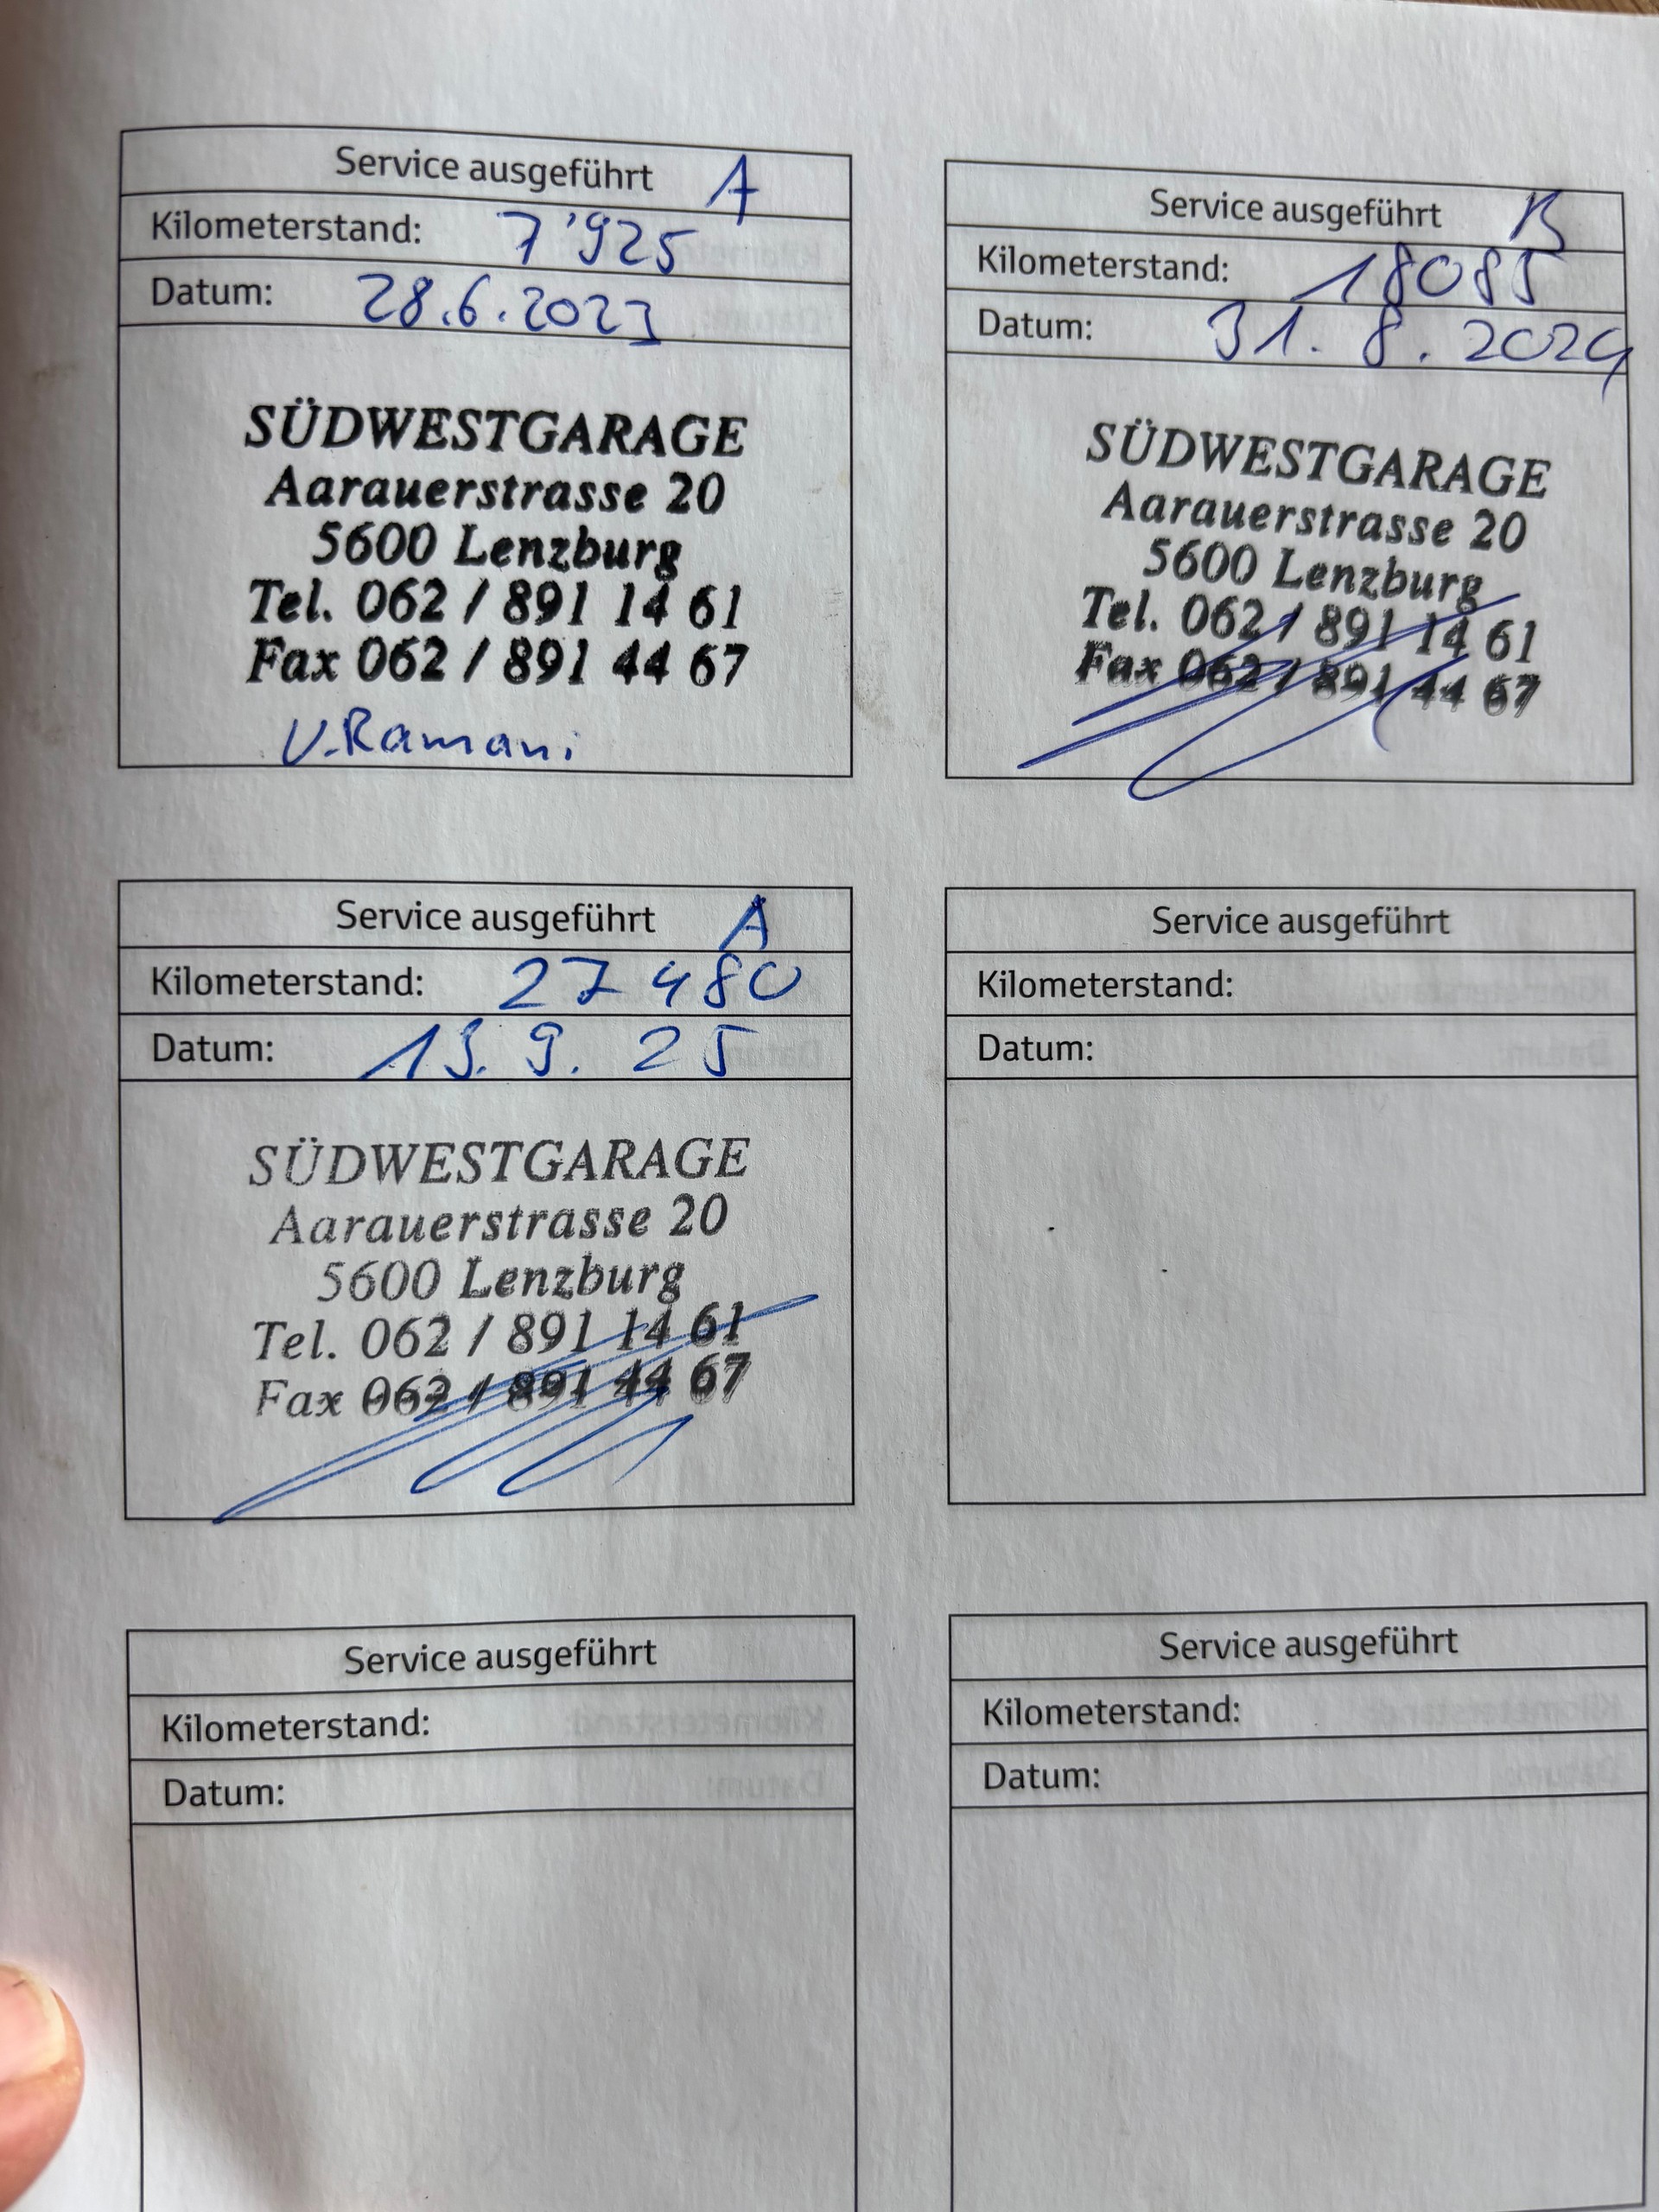 Service ausgeführt A
Kilometerstand: 7'925
Datum: 28.6.2023
SÜDWESTGARAGE
Aarauerstrasse 20
5600 Lenzburg
Tel. 062 / 891 14 61
Fax 062 / 891 44 67
V.Ramani
Service ausgeführt B
Kilometerstand: 18085
Datum: 31. 8. 2024
SÜDWESTGARAGE
Aarauerstrasse 20
5600 Lenzburg
Tel. 062 / 891 14 61
Fax 062 / 891 44 67
Service ausgeführt A
Kilometerstand: 27 480
Datum: 13. 9. 25
SÜDWESTGARAGE
Aarauerstrasse 20
5600 Lenzburg
Tel. 062 / 891 14 61
Fax 062 / 891 44 67
Service ausgeführt
Kilometerstand:
Datum:
Service ausgeführt
Kilometerstand:
Datum:
Service ausgeführt
Kilometerstand:
Datum: